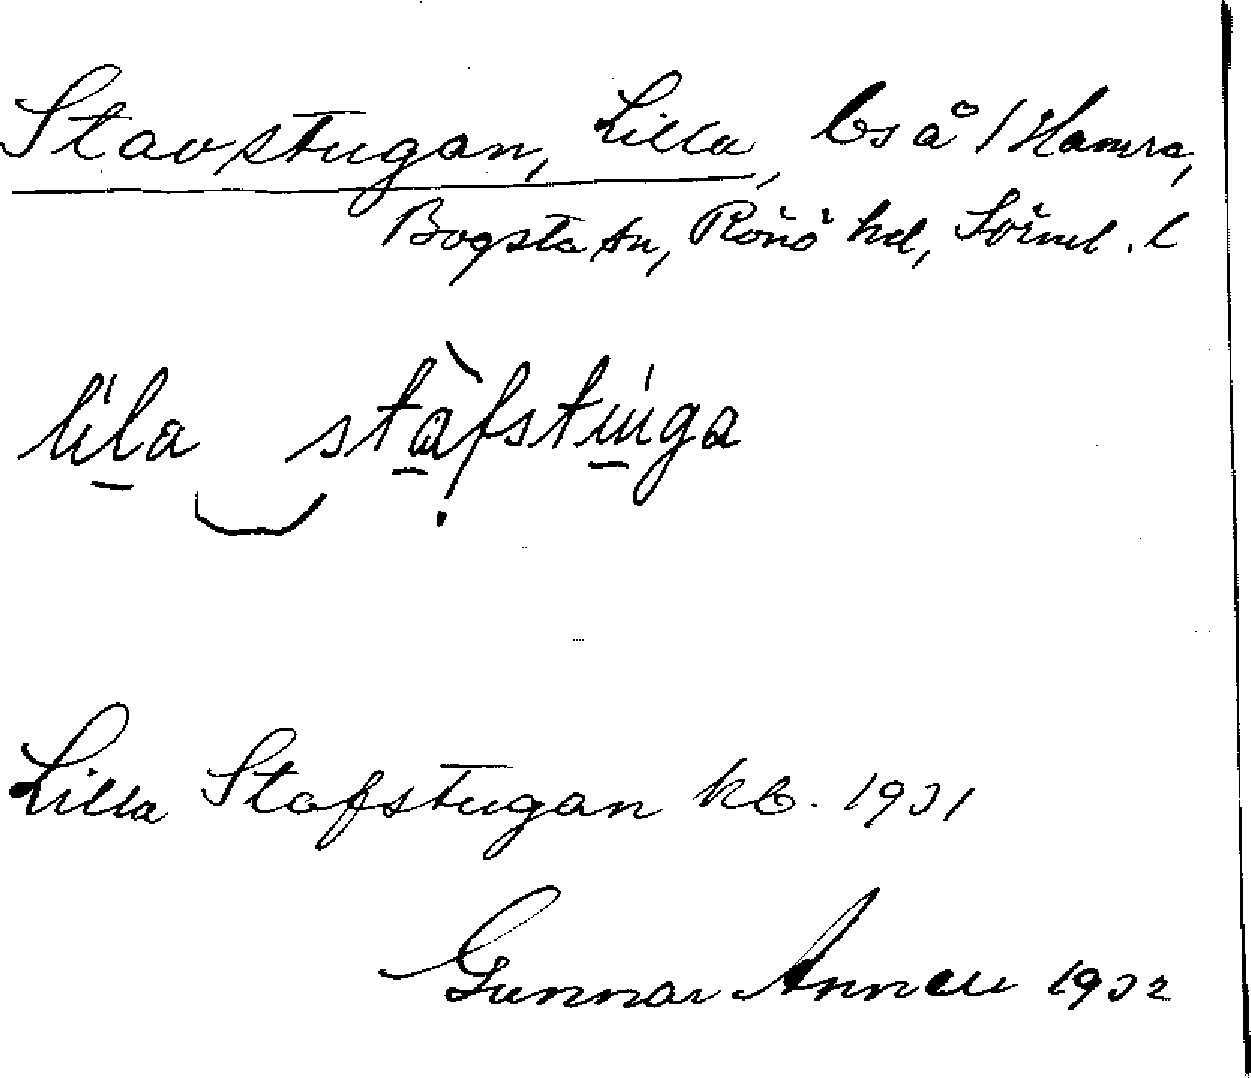 Stavstugan, Lilla, bs å /Hamra,
Bogsta sn, Rönö hd, Sörml. l
lila stàfstuga
Lilla Stafstugan kb. 1931
Gunnar 1932